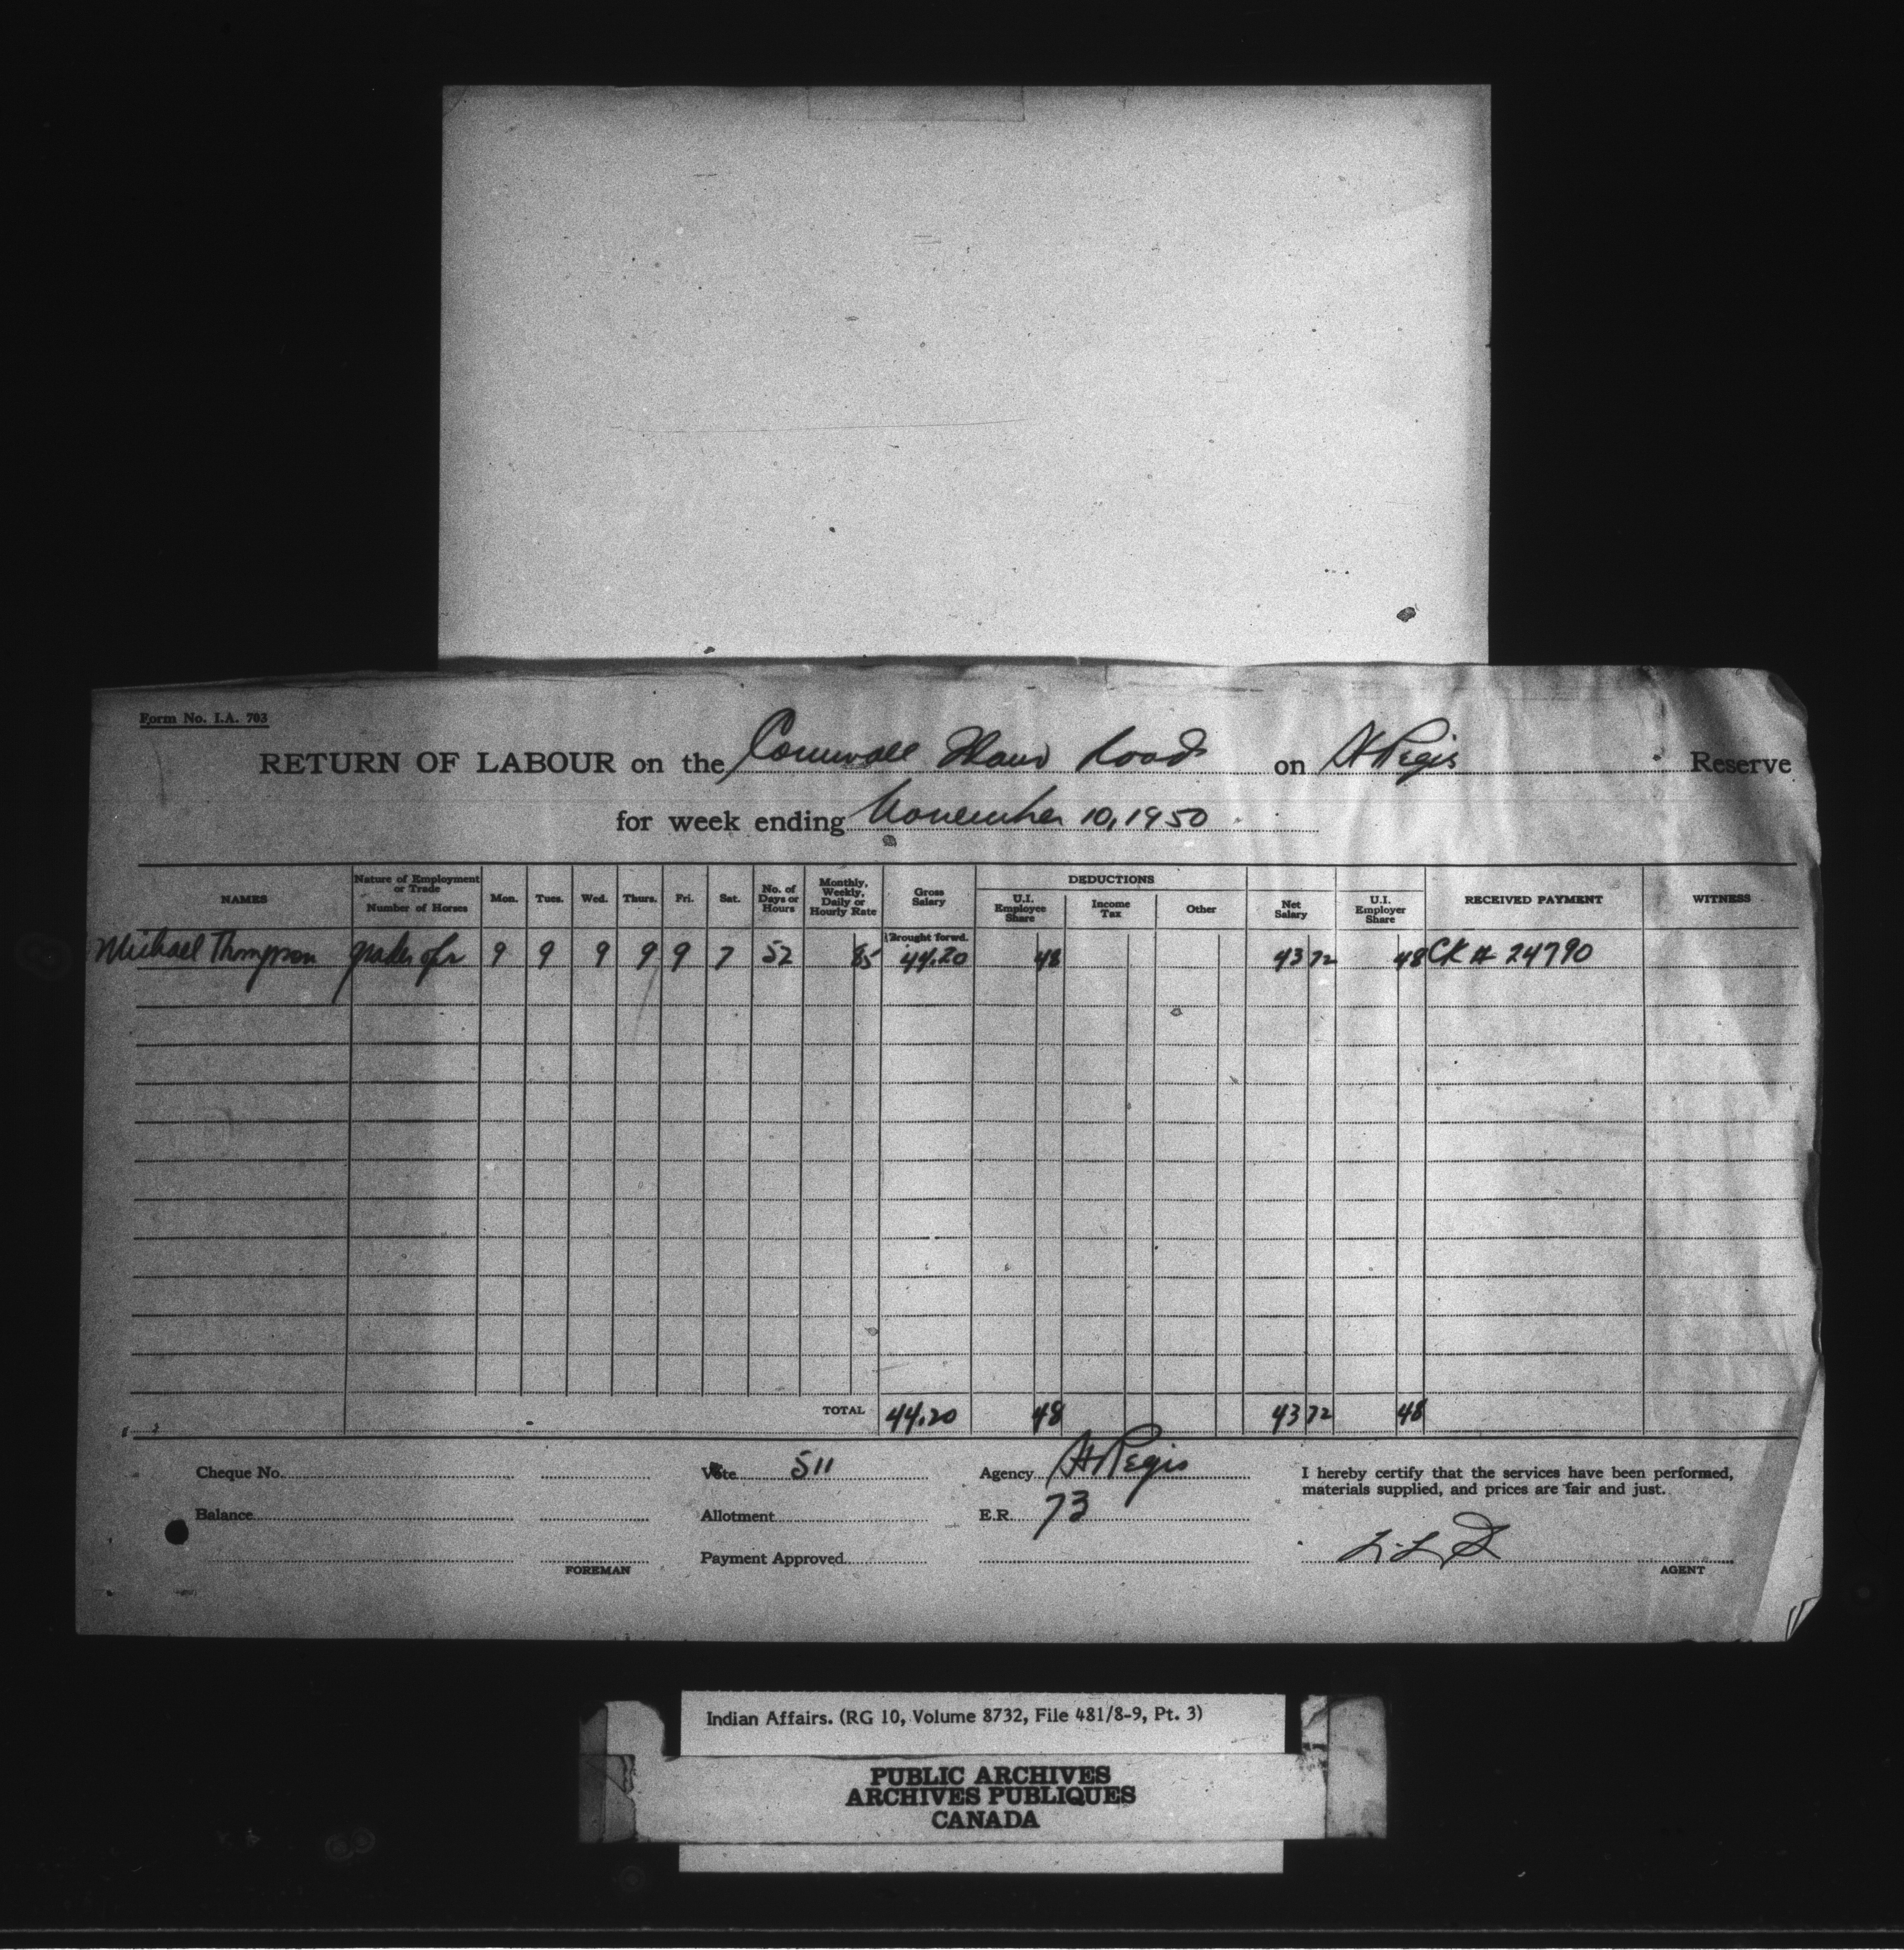 Form No. I.A. 703
RETURN OF LABOUR on the Cornwall Island Roads on St Regis Reserve
for week ending November 10, 1950
NAMES Nature of Employment or Trade Number of Horses Mon. Tues. Wed. Thurs. Fri. Sat. No. of Days or Hours Monthly, Weekly, Daily or Hourly Rate Gross Salary DEDUCTIONS U.I. Employee Share Income Tax Other Net Salary U.I. Employer Share RECEIVED PAYMENT WITNESS
Brought forwd.
Michael Thompson grader opr 9 9 9 9 9 7 52 85 44.20 48 43 72 48 CK # 24790
TOTAL 44.20 48 43 72 48
Cheque No. Vote 511 Agency St Regis I hereby certify that the services have been performed,
materials supplied, and prices are fair and just.
Balance Allotment E.R. 73
Payment Approved
FOREMAN AGENT
Indian Affairs. (RG 10, Volume 8732, File 481/8-9, Pt. 3)
PUBLIC ARCHIVES
ARCHIVES PUBLIQUES
CANADA